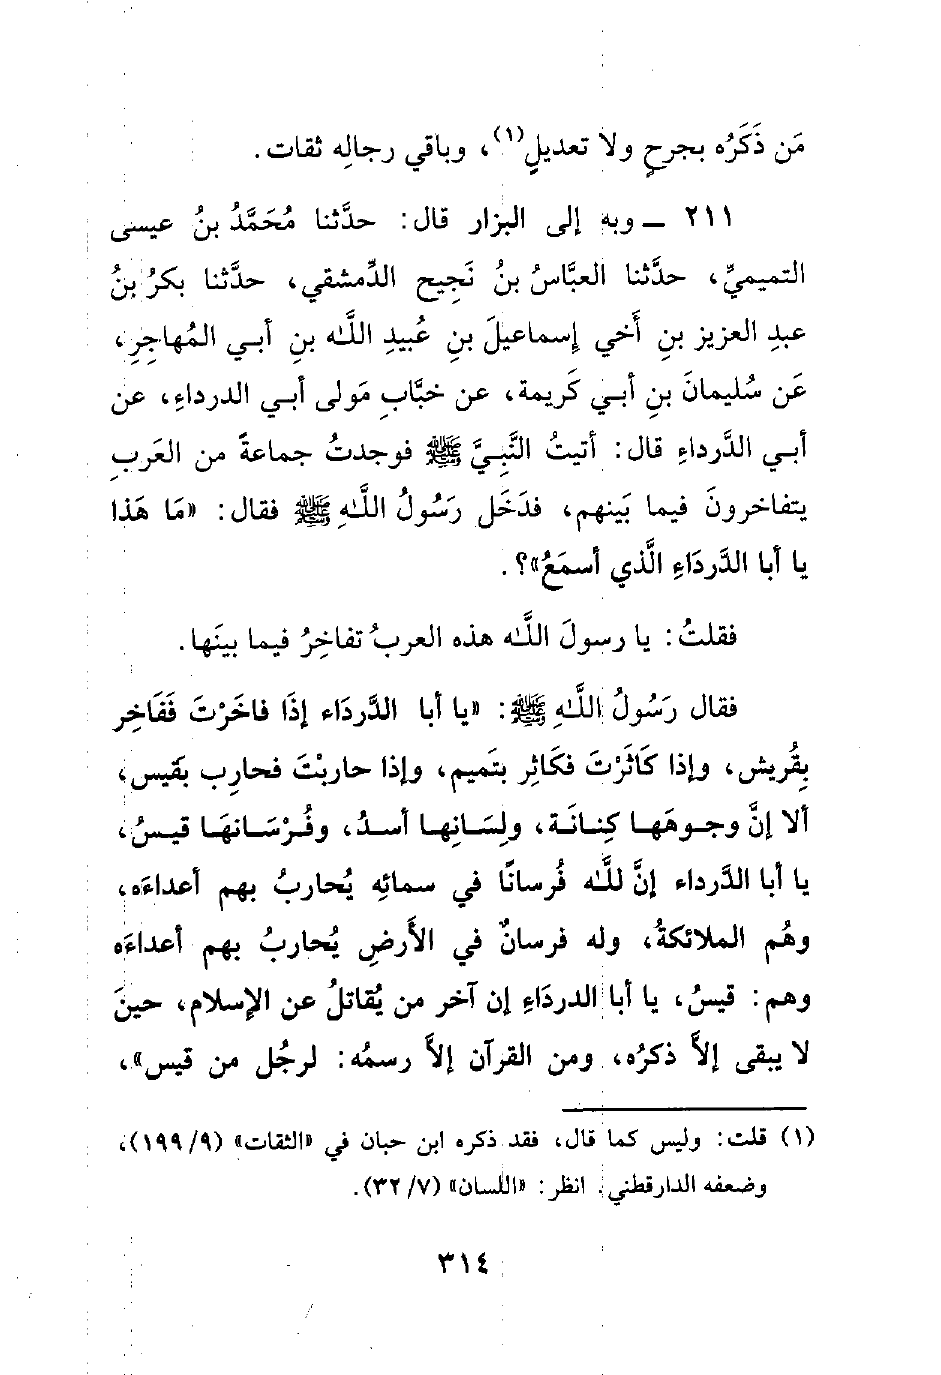 مَن ذَكَرُه بجرحٍ ولا تعديلٍ(١)، وباقي رجالِه ثقات.
٢١١ ــ وبه إلى البزار قال: حدَّثنا مُحَمَّدُ بنُ عيسى
التميميِّ، حدَّثنا العبَّاسُ بنُ نَجِيح الدِّمشقي، حدَّثنا بكرُ بنُ
عبدِ العزيز بنِ أَخي إِسماعيلَ بنِ عُبيدِ اللَّه بنِ أبي المُهاجِرِ،
عَن سُليمانَ بنِ أبي كَريمة، عن خبَّابِ مَولى أبي الدرداءِ، عن
أبي الدَّرداءِ قال: أتيتُ النَّبِيَّ ﷺ فوجدتُ جماعةً من العَربِ
يتفاخرونَ فيما بَينهم، فدَخَل رَسُولُ اللَّهِ ﷺ فقال: «مَا هَذا
يا أبا الدَّردَاءِ الَّذي أسمَعُ»؟.
فقلتُ: يا رسولَ اللَّه هذه العربُ تفاخِرُ فيما بينَها.
فقال رَسُولُ اللَّهِ ﷺ: «يا أبا الدَّردَاء إذَا فاخَرْتَ فَفَاخِر
بِقُريش، وإذا كَاثَرْتَ فكَاثِر بتَميم، وإذا حاربْتَ فحارِب بقَيس،
ألا إنَّ وجوهَها كِنانَة، ولِسَانِها أسدُ، وفُرْسَانهَا قيسُ،
يا أبا الدَّرداء إنَّ للَّه فُرسانًا في سمائِه يُحاربُ بهم أعداءَه،
وهُم الملائكةُ، وله فرسانٌ في الأَرضِ يُحاربُ بهم أعداءَه
وهم: قيسُ، يا أبا الدردَاءِ إن آخر من يُقاتلُ عن الإسلام، حينَ
لا يبقى إلاَّ ذكرُه، ومن القرآن إلاَّ رسمُه: لرجُل من قيس»،
(١) قلت: وليس كما قال، فقد ذكره ابن حبان في «الثقات» (٩/ ١٩٩)،
وضعفه الدارقطني. انظر: «اللسان» (٧/ ٣٢).
٣١٤